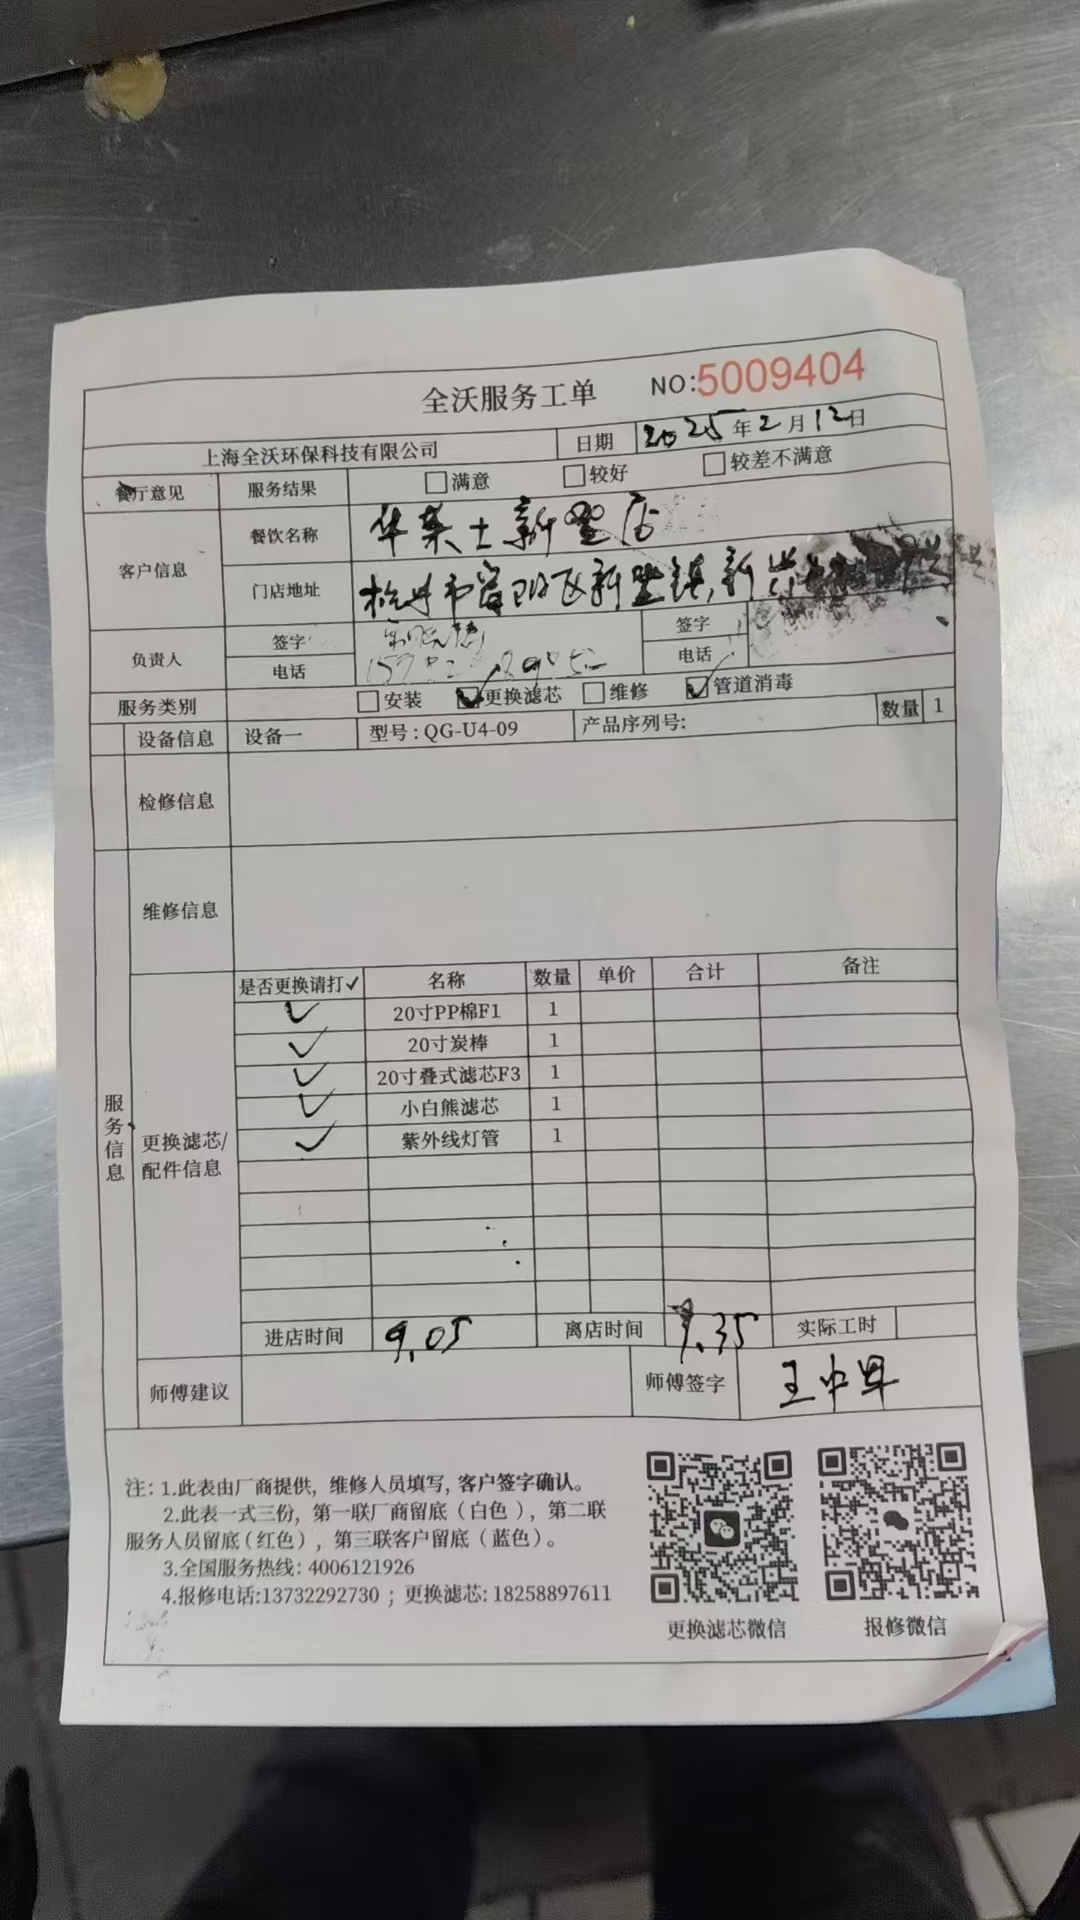 全沃服务工单 NO:5009404
上海全沃环保科技有限公司 日期 2025年2月12日
餐厅意见 服务结果 □满意 □较好 □较差不满意
客户信息 餐饮名称 华莱士新登店
门店地址 杭州市富阳区新登镇新
负责人 签字 签字
电话 电话
服务类别 □安装 ☑更换滤芯 □维修 ☑管道消毒
设备信息 设备一 型号:QG-U4-09 产品序列号: 数量 1
检修信息
维修信息
服务信息
更换滤芯/配件信息
是否更换请打✓ 名称 数量 单价 合计 备注
✓ 20寸PP棉F1 1
✓ 20寸炭棒 1
✓ 20寸叠式滤芯F3 1
✓ 小白熊滤芯 1
✓ 紫外线灯管 1
进店时间 9.05 离店时间 9.35 实际工时
师傅建议 师傅签字 王中
注:1.此表由厂商提供，维修人员填写,客户签字确认。
2.此表一式三份，第一联厂商留底（白色），第二联
服务人员留底(红色)，第三联客户留底（蓝色）。
3.全国服务热线:4006121926
4.报修电话:13732292730；更换滤芯:18258897611
更换滤芯微信 报修微信